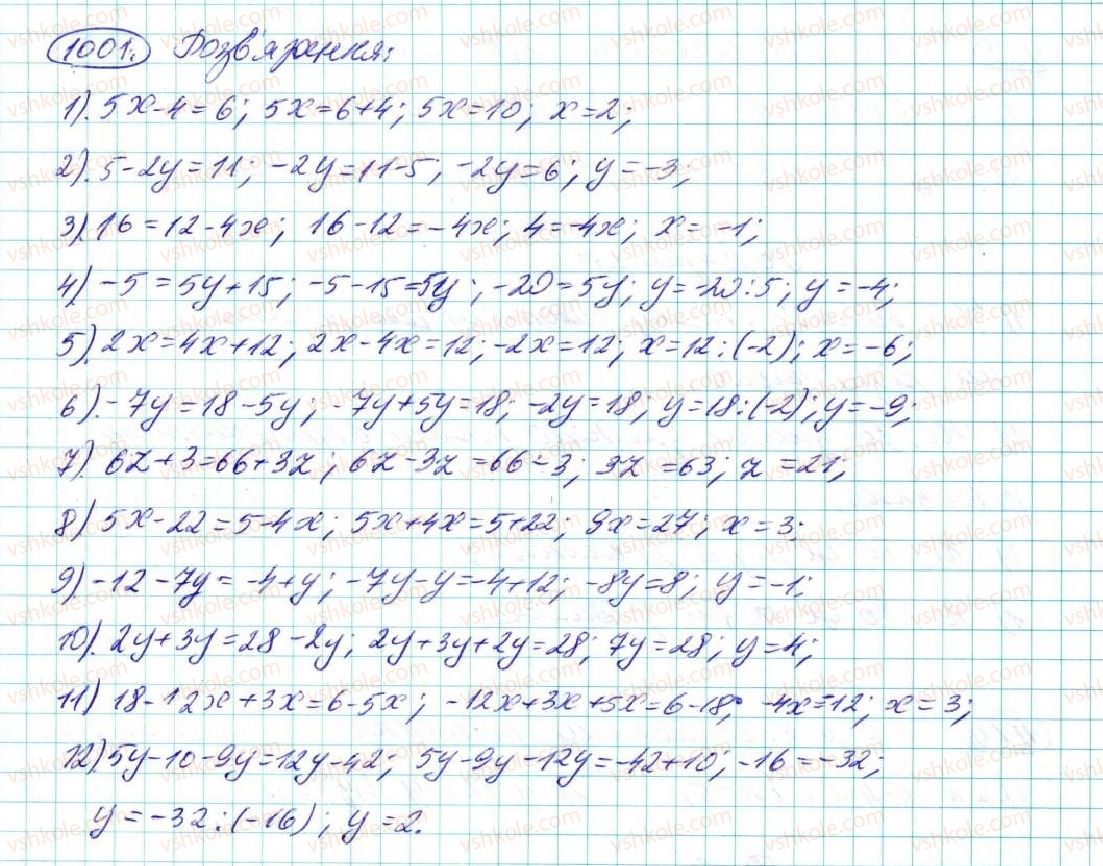 1001. Розв'язання:
1). 5x-4=6; 5x=6+4; 5x=10; x=2;
2). 5-2y=11; -2y=11-5; -2y=6; y=-3;
3). 16=12-4x; 16-12=-4x; 4=-4x; x=-1;
4) -5=5y+15; -5-15=5y; -20=5y; y=-20:5; y=-4;
5). 2x=4x+12; 2x-4x=12; -2x=12; x=12:(-2); x=-6;
6). -7y=18-5y; -7y+5y=18; -2y=18; y=18:(-2); y=-9;
7) 6z+3=66+3z; 6z-3z=66-3; 3z=63; z=21;
8) 5x-22=5-4x; 5x+4x=5+22; 9x=27; x=3;
9) -12-7y=-4+y; -7y-y=-4+12; -8y=8; y=-1;
10). 2y+3y=28-2y; 2y+3y+2y=28; 7y=28; y=4;
11) 18-12x+3x=6-5x; -12x+3x+5x=6-18; -4x=-12; x=3;
12) 5y-10-9y=12y-42; 5y-9y-12y=-42+10; -16=-32;
y=-32:(-16); y=2.